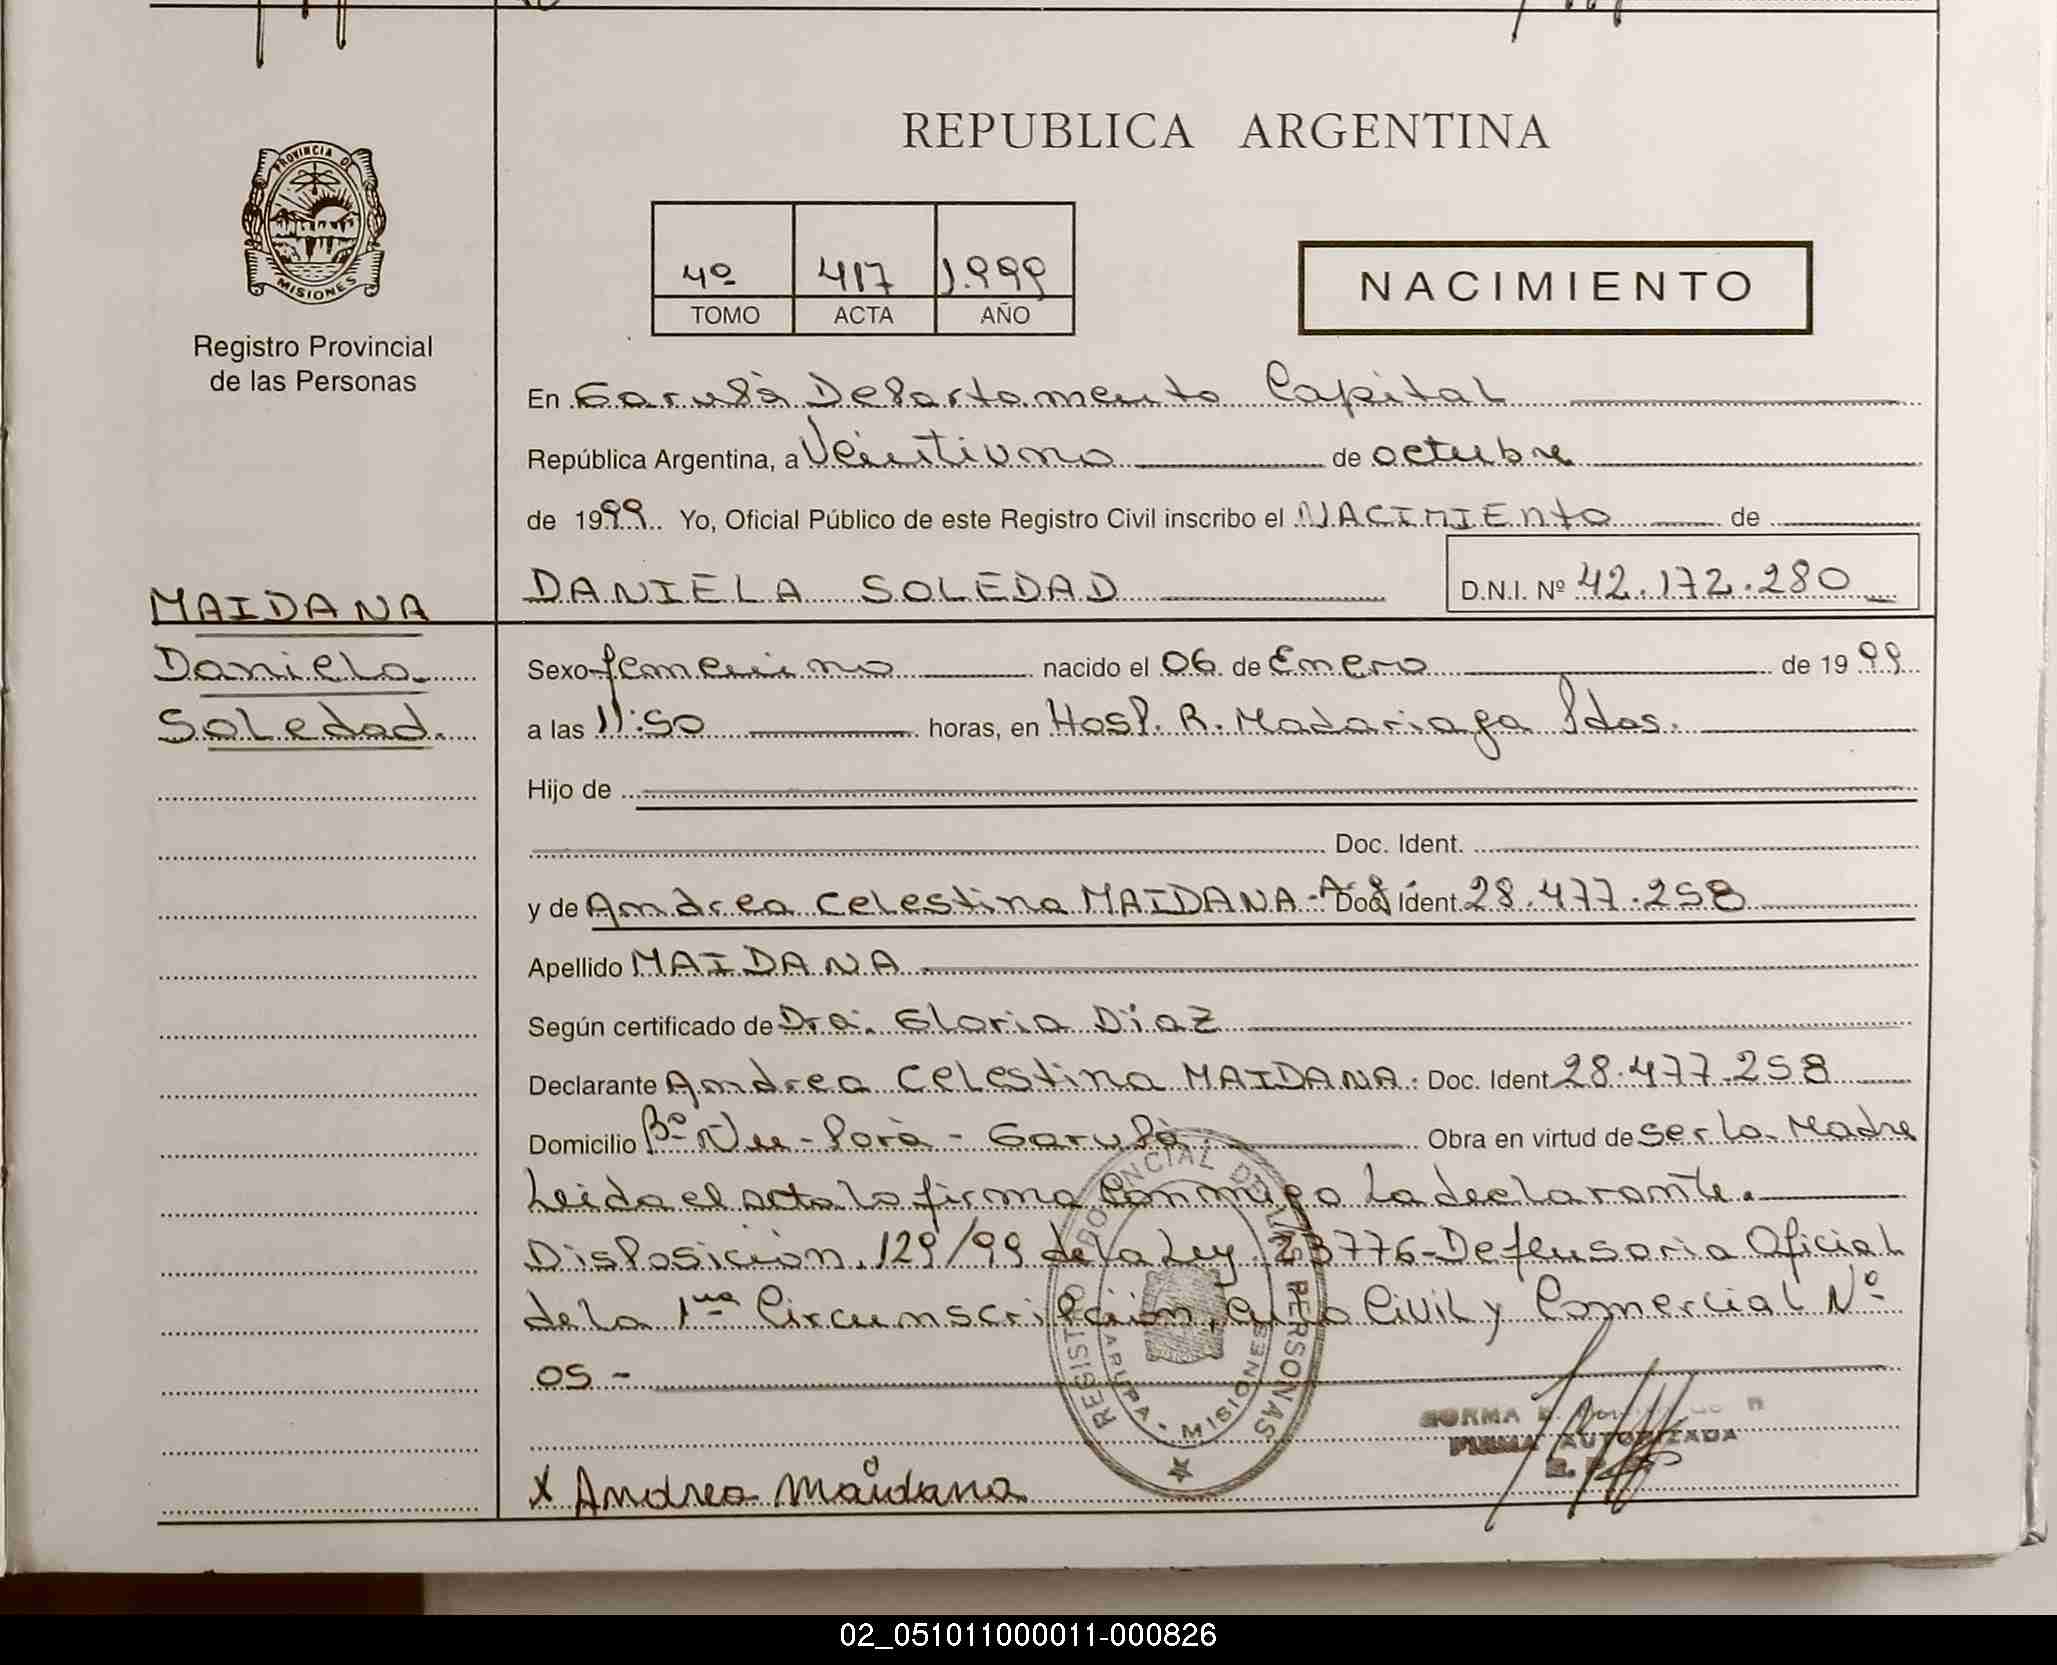 REPUBLICA ARGENTINA
PROVINCIA DE
MISIONES
Registro Provincial
de las Personas
4º 417 1.999
TOMO ACTA AÑO
NACIMIENTO
En Garupà Departamento Capital
República Argentina, a Veintiuno de octubre
de 1999. Yo, Oficial Público de este Registro Civil inscribo el NACIMIEnto de
DANIELA SOLEDAD D.N.I. Nº 42.172.280
MAIDANA
Daniela
Soledad.
Sexo femenino nacido el 06 de Enero de 1999
a las 11:50 horas, en Hosp. R. Madariaga Pdas.
Hijo de
Doc. Ident.
y de Andrea Celestina MAIDANA - Doc. Ident. 28.477.258
Apellido MAIDANA
Según certificado de Dra. Gloria Díaz
Declarante Andrea Celestina MAIDANA. Doc. Ident 28.477.258
Domicilio Bº Ñu-Porà - Garupà. Obra en virtud de ser la Madre
Leida el acta la firma conmigo la declarante.
Disposición. 129/99 de la Ley 23776-Defensoria Oficial
de la 1ra Circunscripción, en lo Civil y Comercial Nº
05 -
REGISTRO PROVINCIAL DE LAS PERSONAS
GARUPA - MISIONES
NORMA
FIRMA AUTORIZADA
X Andrea Maidana
02_051011000011-000826